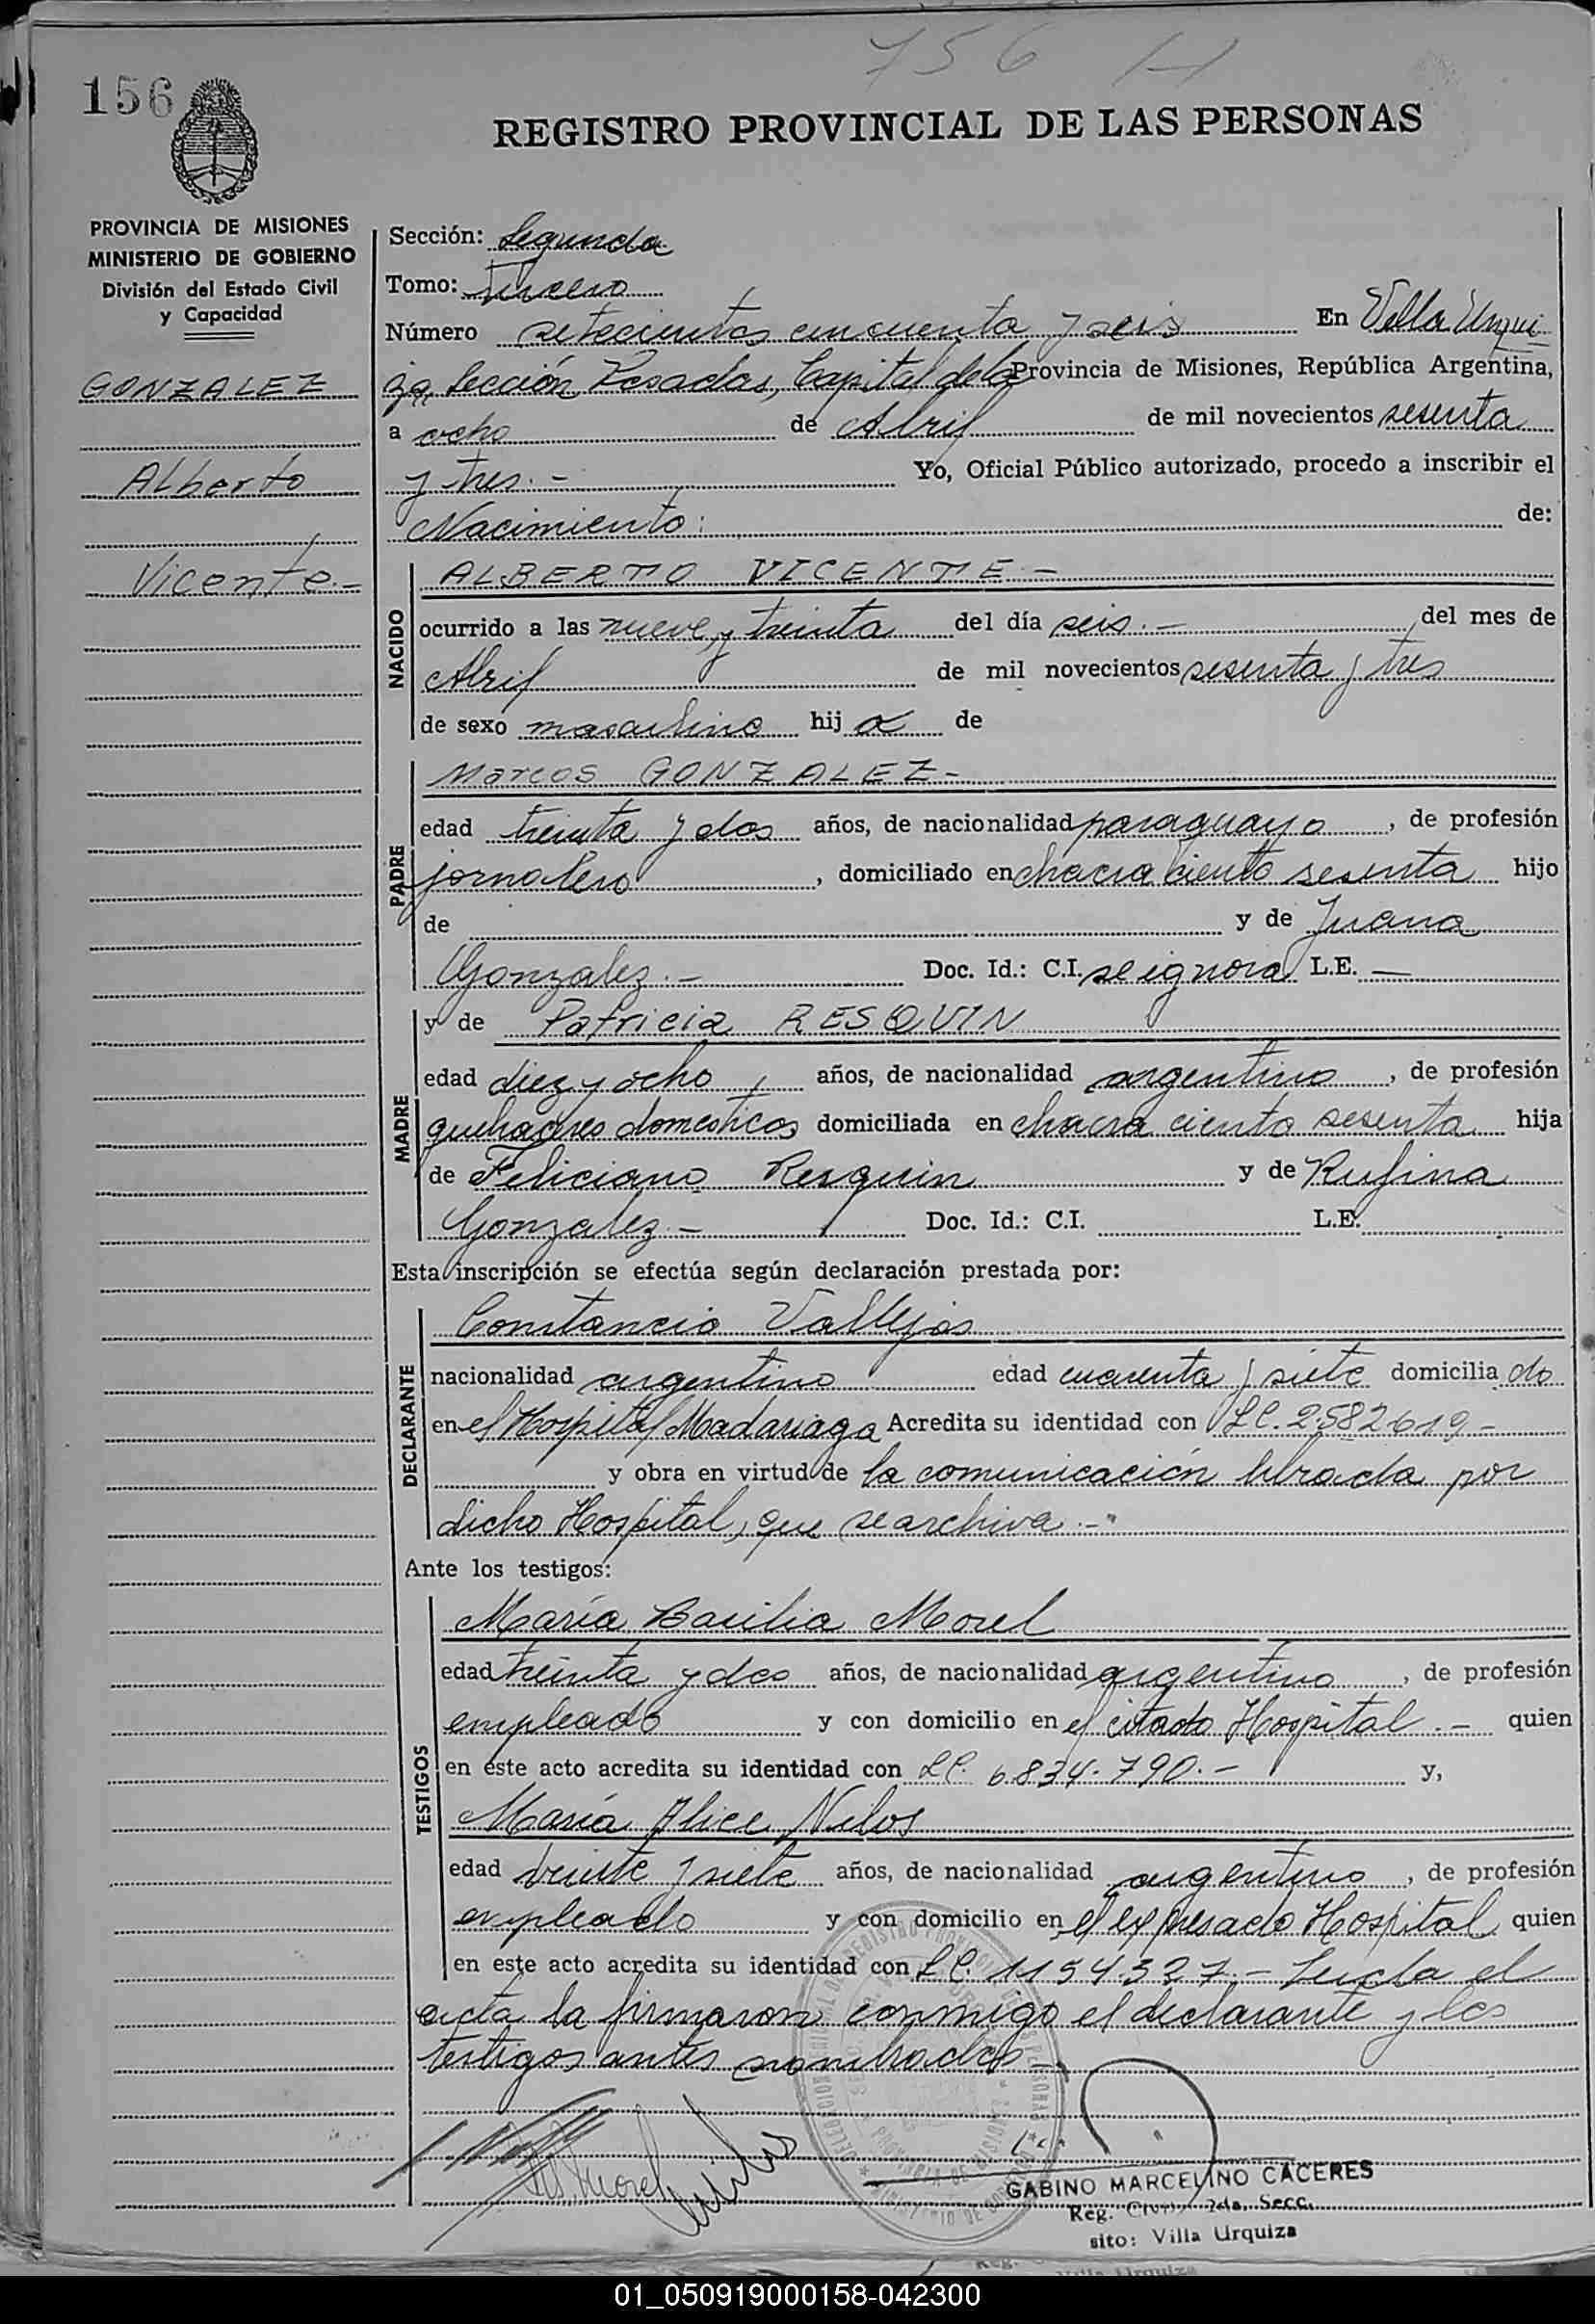 756 H
156
REGISTRO PROVINCIAL DE LAS PERSONAS
PROVINCIA DE MISIONES
MINISTERIO DE GOBIERNO
División del Estado Civil
y Capacidad
GONZALEZ
Alberto
Vicente.-
Sección: Segunda
Tomo: Tercero
Número setecientos cincuenta y seis En Villa Urqui
za, Sección Posadas, Capital de la Provincia de Misiones, República Argentina,
a ocho de Abril de mil novecientos sesenta
y tres.- Yo, Oficial Público autorizado, procedo a inscribir el
Nacimiento: de:
NACIDO
ALBERTO VICENTE-
ocurrido a las nueve y treinta del día seis.- del mes de
Abril de mil novecientos sesenta y tres
de sexo masculino hijo de
PADRE
Marcos GONZALEZ-
edad treinta y dos años, de nacionalidad paraguayo, de profesión
jornalero, domiciliado en chacra ciento sesenta hijo
de y de Juana
Gonzalez.- Doc. Id.: C.I. se ignora L.E. —
MADRE
y de Patricia RESQUIN
edad diez y ocho años, de nacionalidad argentino, de profesión
quehaceres domesticos domiciliada en chacra ciento sesenta hija
de Feliciano Resquin y de Rufina
Gonzalez.- Doc. Id.: C.I. L.E.
Esta inscripción se efectúa según declaración prestada por:
DECLARANTE
Constancio Vallejos
nacionalidad argentino edad cuarenta y siete domiciliado
en el Hospital Madariaga Acredita su identidad con 2.582619-
y obra en virtud de la comunicación librada por
dicho Hospital, que se archiva.-
Ante los testigos:
TESTIGOS
María Basilia Morel
edad treinta y dos años, de nacionalidad argentino, de profesión
empleado y con domicilio en el citado Hospital.- quien
en este acto acredita su identidad con L.C. 6.834.790.- y,
María Alice Nilos
edad veinte y siete años, de nacionalidad argentino, de profesión
empleado y con domicilio en el expresado Hospital quien
en este acto acredita su identidad con L.C. 1154.327.- Leida el
acta la firmaron conmigo el declarante y los
testigos antes nombrados-
GABINO MARCELINO CACERES
Reg. Civil 2da. Secc.
sito: Villa Urquiza
01_050919000158-042300